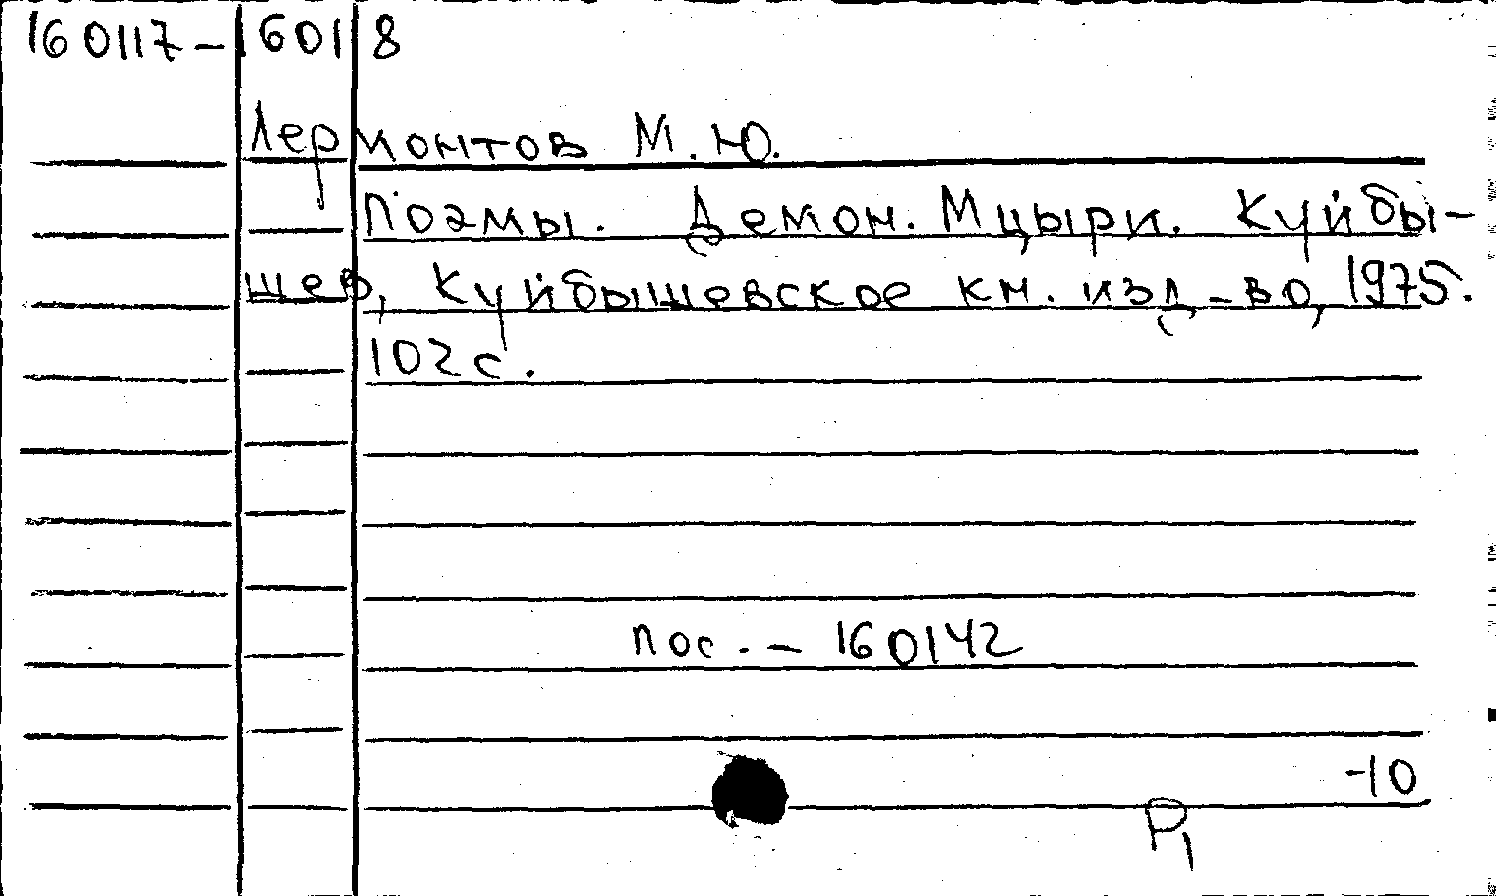 160117-160118
Лермонтов М.Ю.
Поэмы. Демон. Мцыри. Куйбы-
шев, Куйбышевское кн. изд-во, 1975.
102с.
пос. - 160142
-10
Р1